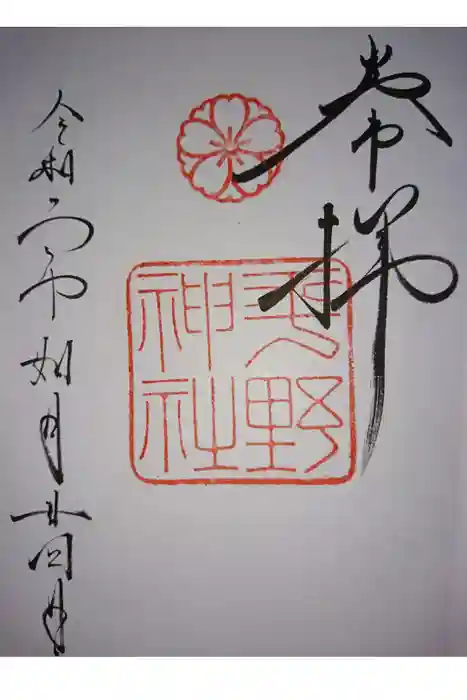 奉拝
平野神社
令和年如月廿四日